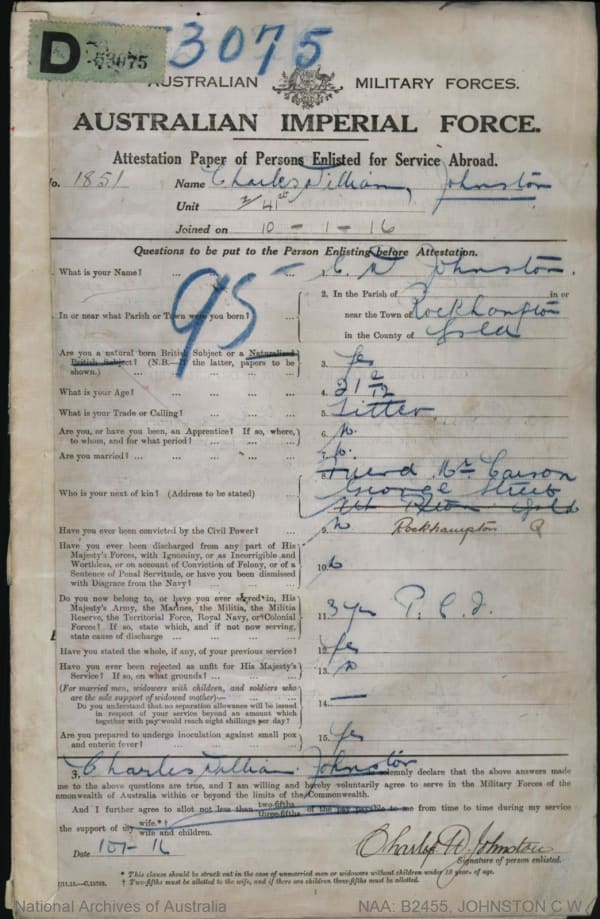 D 53075
53075
AUSTRALIAN MILITARY FORCES.
AUSTRALIAN IMPERIAL FORCE.
Attestation Paper of Persons Enlisted for Service Abroad.
No. 1851 Name Charles William Johnston
Unit 2/41st
Joined on 10 - 1 - 16
Questions to be put to the Person Enlisting before Attestation.
95
What is your Name? ... ... ... 1. C. W Johnston.
In or near what Parish or Town were you born? ... 2. In the Parish of Rockhampton in or
near the Town of
in the County of Qsld
Are you a natural born British Subject or a Naturalized
British Subject? (N.B.—If the latter, papers to be
shown.) ... ... ... ... 3. yes
What is your Age? ... ... ... ... 4. 21 2/12
What is your Trade or Calling? ... ... ... 5. Fitter
Are you, or have you been, an Apprentice? If so, where,
to whom, and for what period? ... ... 6. No.
Are you married? ... ... ... ... 7. No.
Who is your next of kin? (Address to be stated) ... 8. Friend Mr Carson
George Street
Qsld
Rockhampton Q
Have you ever been convicted by the Civil Power? ... 9. N
Have you ever been discharged from any part of His
Majesty's Forces, with Ignominy, or as Incorrigible and
Worthless, or on account of Conviction of Felony, or of a
Sentence of Penal Servitude, or have you been dismissed
with Disgrace from the Navy? ... ... 10. No
Do you now belong to, or have you ever served in, His
Majesty's Army, the Marines, the Militia, the Militia
Reserve, the Territorial Force, Royal Navy, or Colonial
Forces? If so, state which, and if not now serving,
state cause of discharge ... ... ... 11. 3 yrs P.C.F.
Have you stated the whole, if any, of your previous service? 12. yes
Have you ever been rejected as unfit for His Majesty's
Service? If so, on what grounds? ... ... 13. no
(For married men, widowers with children, and soldiers who
are the sole support of widowed mother)—
Do you understand that no separation allowance will be issued
in respect of your service beyond an amount which
together with pay would reach eight shillings per day? 14. —
Are you prepared to undergo inoculation against small pox
and enteric fever? ... ... ... 15. Yes
3. Charles William Johnston solemnly declare that the above answers made
me to the above questions are true, and I am willing and hereby voluntarily agree to serve in the Military Forces of the
mmonwealth of Australia within or beyond the limits of the Commonwealth.
And I further agree to allot not less than two-fifths
three-fifths of the pay payable to me from time to time during my service
the support of my wife.* †
wife and children.
Date 10-1-16 Charles W Johnston
Signature of person enlisted.
* This clause should be struck out in the case of unmarried men or widowers without children under 18 years of age.
† Two-fifths must be allotted to the wife, and if there are children three-fifths must be allotted.
National Archives of Australia NAA: B2455, JOHNSTON C W